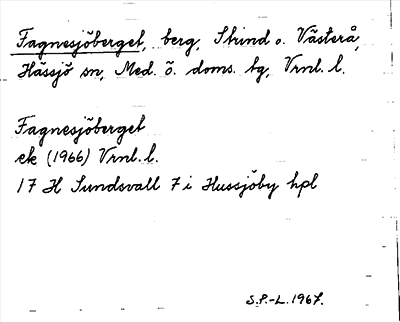 Fagnesjöberget, berg, Strind o. Västerå,
Hässjö sn, Med. ö. doms. tg, Vrnl. l.
Fagnesjöberget
ek (1966) Vrnl. l.
17 H Sundsvall 7 i Hussjöby hpl
S.P.-L. 1967.